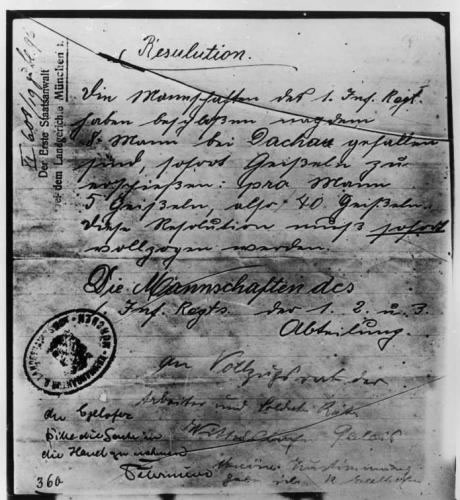 Resulution.
Der Erste Staatsanwalt
bei dem Landgerichte München I.
Die Mannschaften des 1. Inf. Regt.
haben beschloßen nachdem
8. Mann bei Dachau gefallen
sind, sofort Geißeln zu
erschießen: pro Mann
5 Geißeln, also 40 Geißeln.
Diese Resolution muß sofort
vollzogen werden.
Die Mannschaften des
1. Inf. Regts. der 1. 2. u. 3.
Abteilung.
MÜNCHEN
An Vollzugsrat der
Arbeiter und Soldaten Räte
Wittelsbacher Palais
An Eglhofer
Bitte die Sache in
die Hand zu nehmen
Meine Zustimmung
360